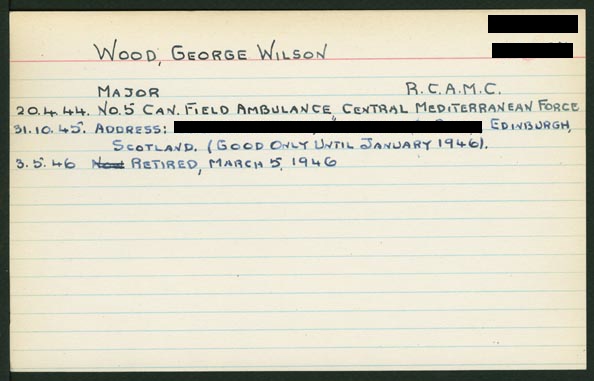 WOOD, GEORGE WILSON
MAJOR R.C.A.M.C.
20.4.44. NO.5 CAN. FIELD AMBULANCE, CENTRAL MEDITERRANEAN FORCE
31.10.45. ADDRESS: EDINBURGH,
SCOTLAND. (GOOD ONLY UNTIL JANUARY 1946).
3.5.46 RETIRED, MARCH 5, 1946